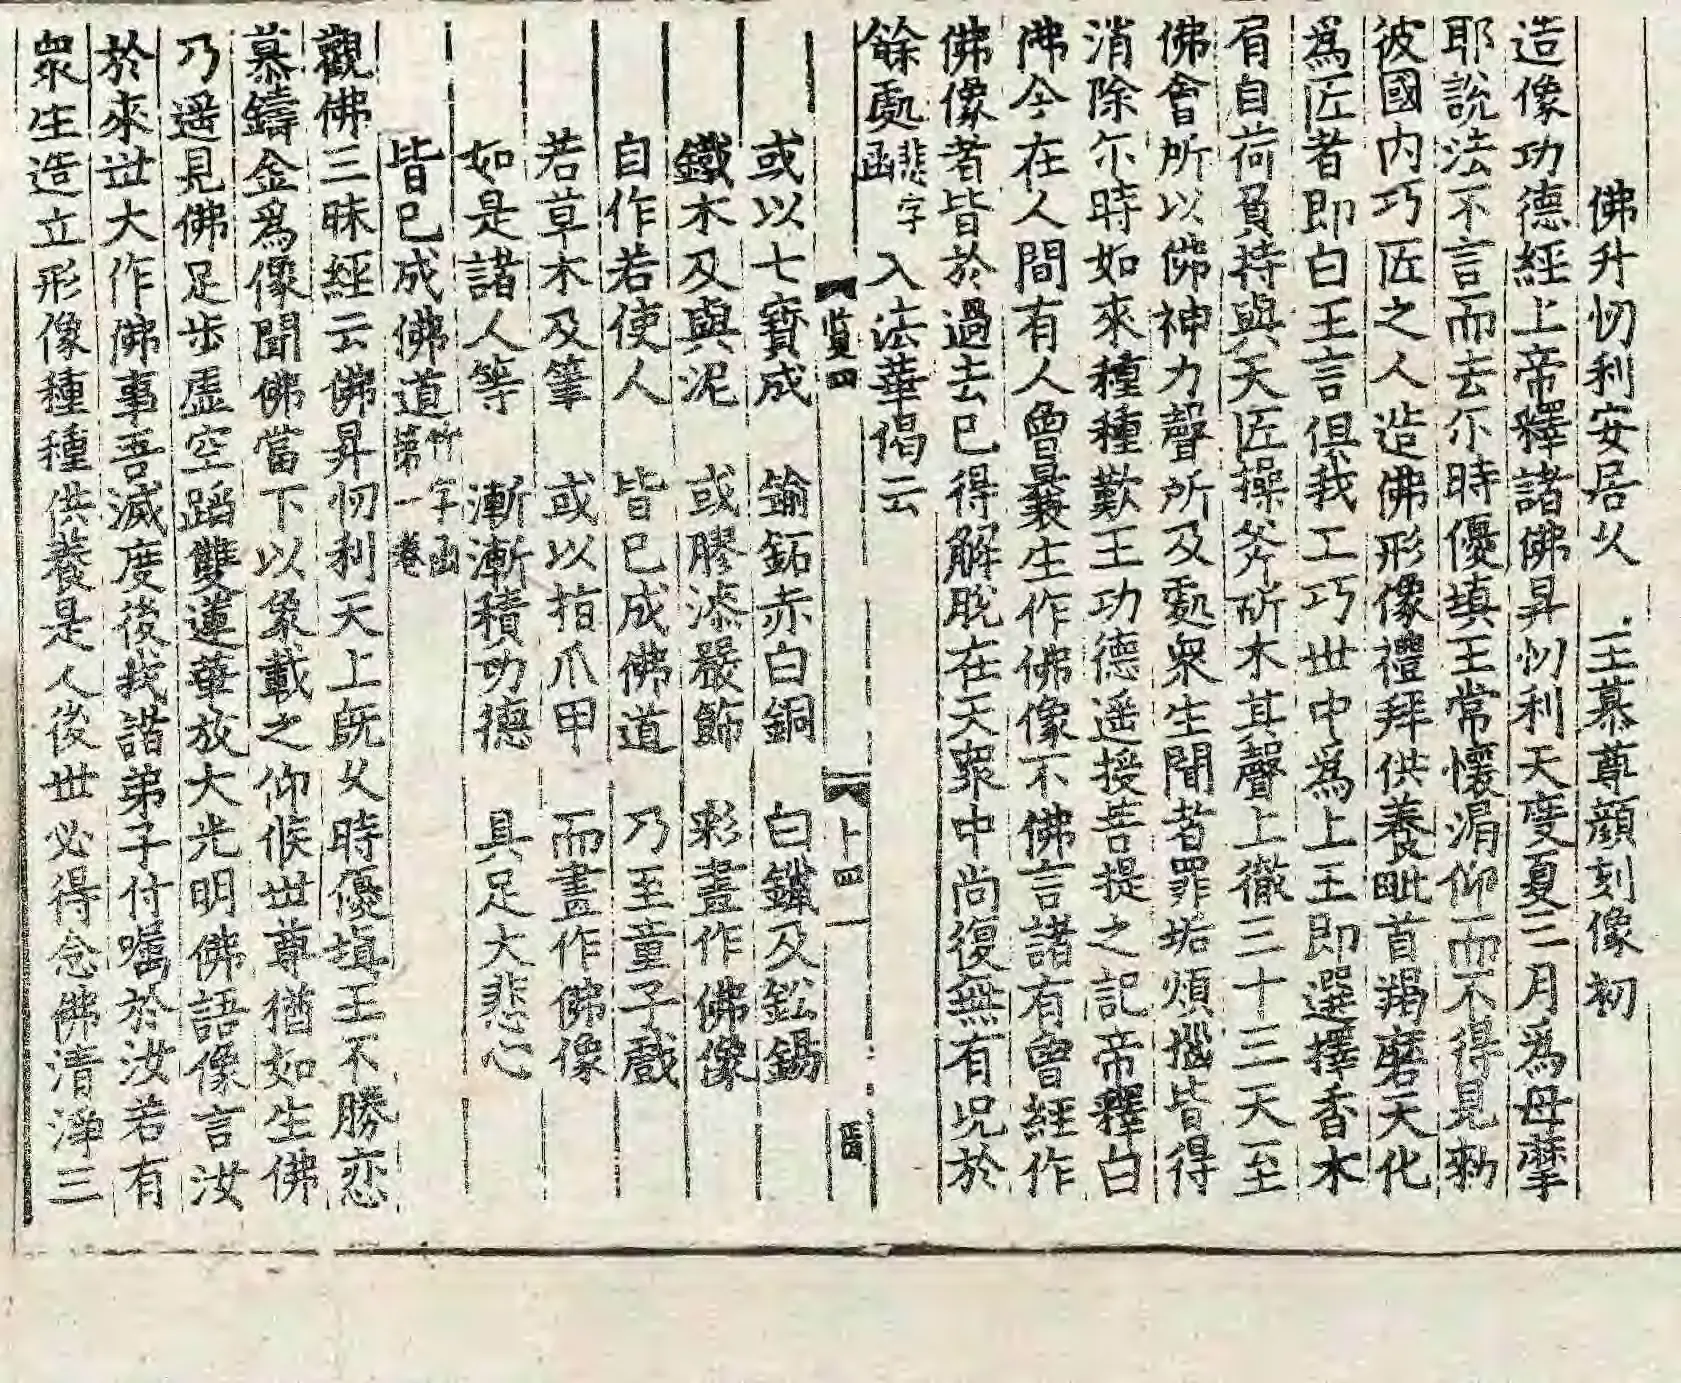 佛升忉利安居乆　王慕尊顔刻像初
造像功德經上帝釋諸佛昇忉利天度夏三月爲母摩
耶說法不言而去尓時優填王常懷渴仰而不得見勑
彼國内巧匠之人造佛形像禮拜供養毗首羯磨天化
爲匠者即白王言俱我工巧世中爲上王即選擇香木
肩自荷負持與天匠操斧斫木其聲上徹三十三天至
佛會所以佛神力聲所及處衆生聞者罪垢煩惱皆得
消除尓時如來種種歎王功德遥授菩提之記帝釋白
佛今在人間有人曾曩生作佛像不佛言諸有曾經作
佛像者皆於過去已得解脱在天衆中尚復無有况於
餘處 悲字函　入法華偈云
或以七寳成　鍮鉐赤白銅　白鑞及鈆錫
鐵木及與泥　或膠漆嚴飾　彩畫作佛像
自作若使人　皆已成佛道　乃至童子戲
若草木及筆　或以指爪甲　而畫作佛像
如是諸人等　漸漸積功德　具足大悲心
皆已成佛道 竹字函第一卷
觀佛三昧經云佛昇忉利天上旣乆時優塡王不勝恋
慕鑄金爲像聞佛當下以象載之仰候世尊猶如生佛
乃遥見佛足步虛空蹈雙蓮華放大光明佛語像言汝
於來世大作佛事吾滅度後我諸弟子付囑於汝若有
衆生造立形像種種供養是人後世必得念佛清淨三